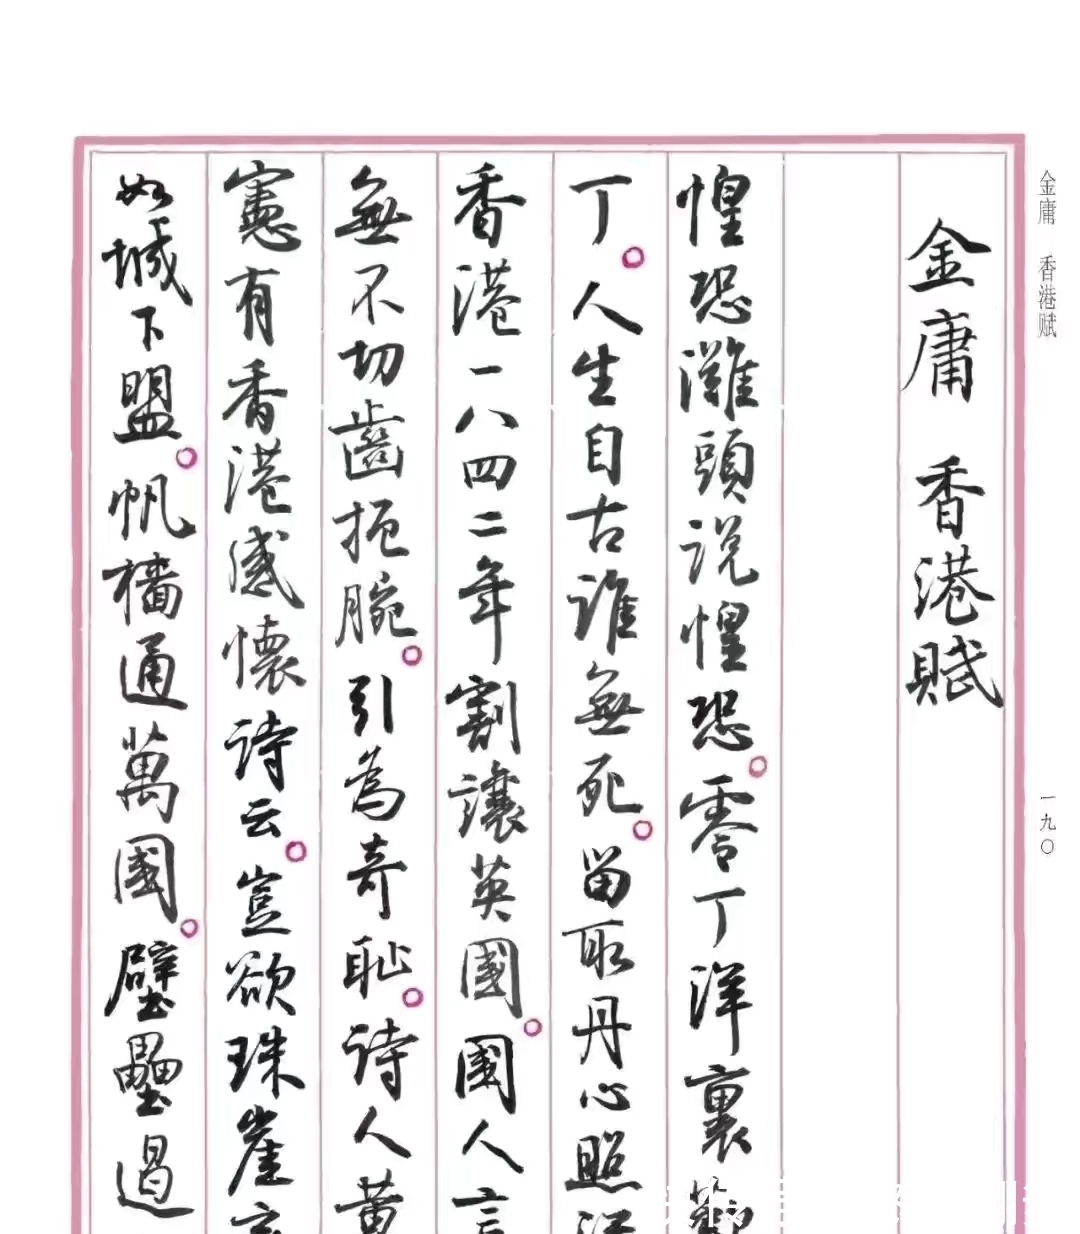 金庸 香港賦
一九〇
金庸 香港賦
惶恐灘頭說惶恐。零丁洋裏
丁。人生自古誰無死。留取丹心照
香港一八四二年割讓英國。國人言
無不切齒扼腕。引為奇恥。诗人黄
憲有香港感懷诗云。豈欲珠崖
如城下盟。帆檣通萬國。壁壘過